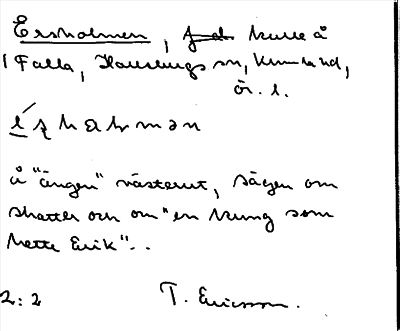 Ersholmen, kulle å
i Falla, Hausbergs sn, Kumla hd,
ör. l.
å "ängen" västerut, sägen om
skatter och om "en kung som
hette Erik"..
2:2 T. Ericsson.